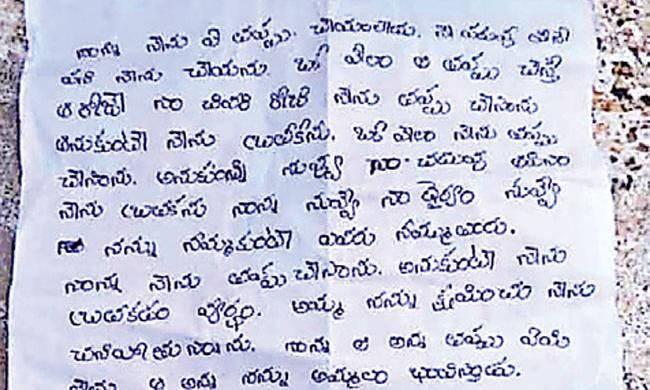 నాన్న నేను ఏ తప్పు. చేయలేదు. నీ మీద
నేను చేయను. ఒక వేళ ఆ తప్పు చేస్తే
ఆ రోజే నా చివరి రోజు నేను తప్పు చేసాను
అనుకుంటే నేను బ్రతకను. ఒక వేళ నేను తప్పు
చేసాను. అనుకుంటున్న నువ్వు నా
నేను బ్రతకను నాన్న నువ్వే నా ధైర్యం నువ్వే
నన్ను నమ్మకుంటే ఎవరు నమ్ముతారు.
నాన్న నేను తప్పు చేసాను. అనుకుంటే నేను
బ్రతకడం వ్యర్థం. అమ్మ నన్ను క్షమించు నేను
చనిపోతున్నాను. నాన్న ఆ అన్న తప్పు
నేను ఆ అన్న నన్ను అమ్మలా భావించాడు.